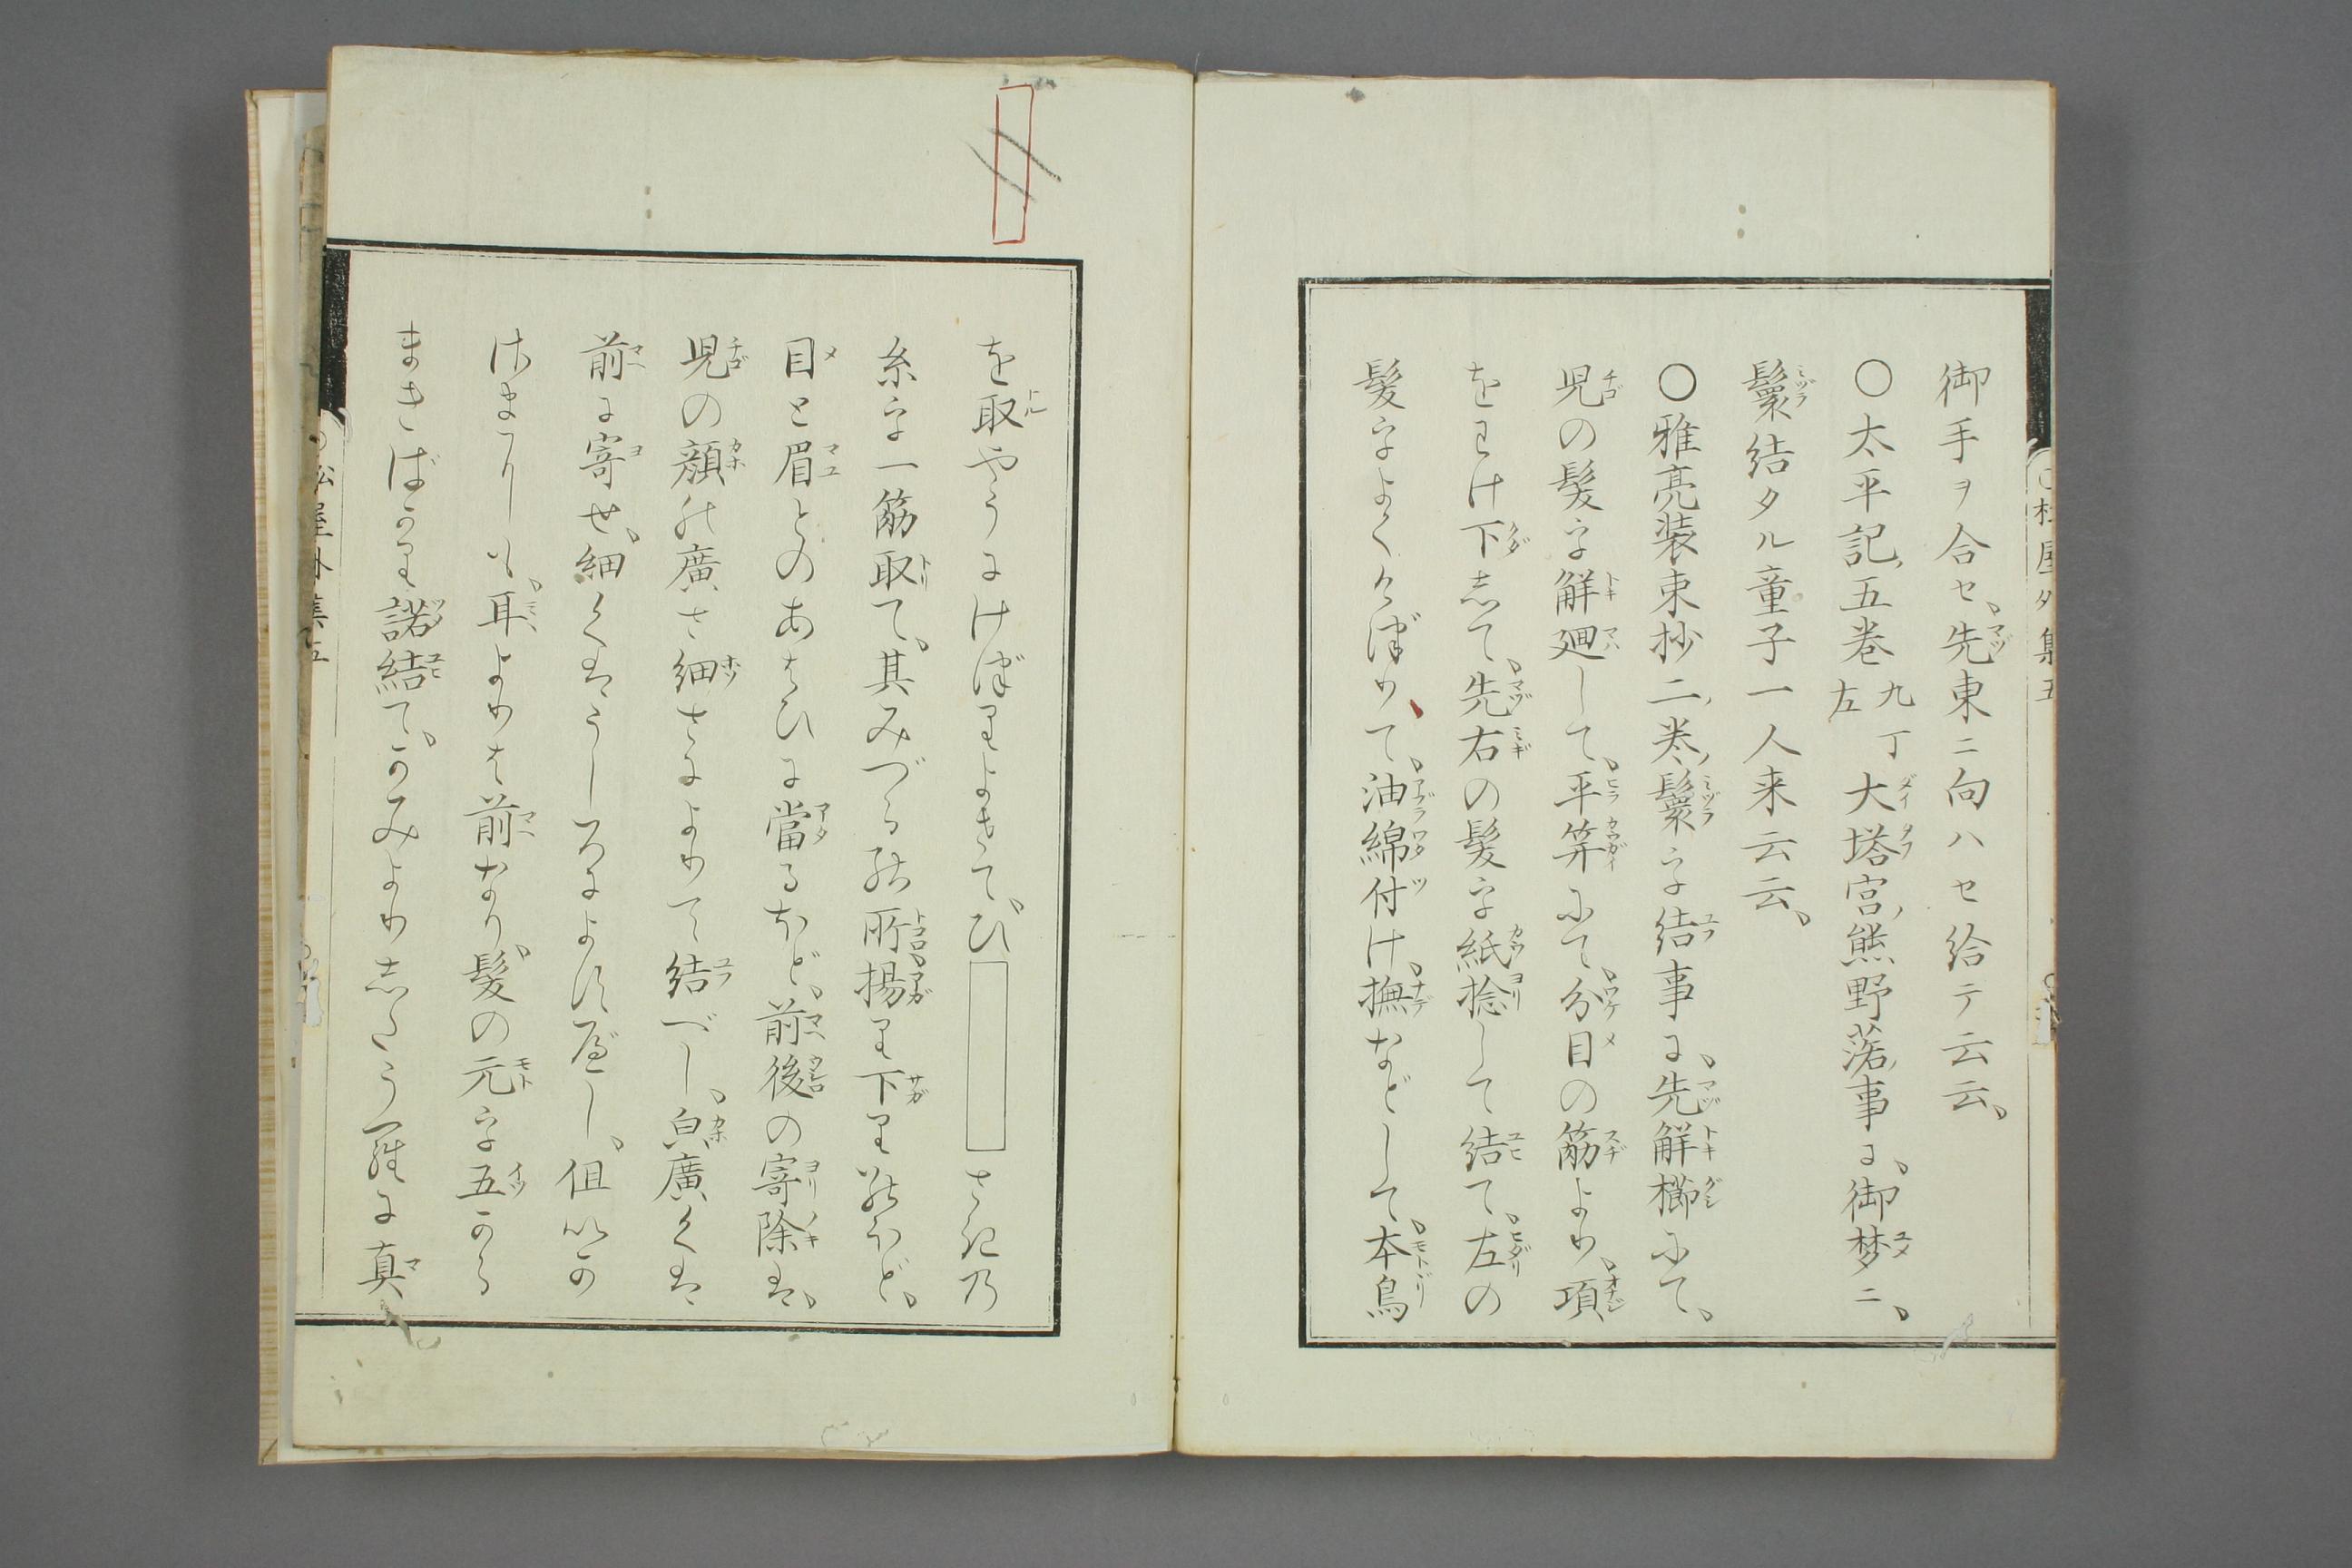 御手ヲ合セ、先東ニ向ハセ給テ云云、
○太平記五巻九丁左大塔宮熊野落事に、御梦ニ、
鬟結タル童子一人来云云、
○雅亮装束抄二巻鬟を結事に、先解櫛にて、
児の髪を解廻して、平笄にて、分目の筋より、項
をわけ下して、先右の髪を紙捻して結て、左の
髪をよくけづりて、油綿付け、撫などして、本鳥
を取やうにけづりよせて、ひ さきの
糸を一筋取て、其みづらの所揚り下りのほど、
目と眉とのあはひに當るほど、前後の寄除は、
児の顔の廣さ細さによりて結べし、皃廣くは
前に寄せ、細くはうしろによすべし、但いか
にも、耳よりは前なり、髪の元を五から
まきばかり諾結て、かみよりしたう羅に真
松屋外集五